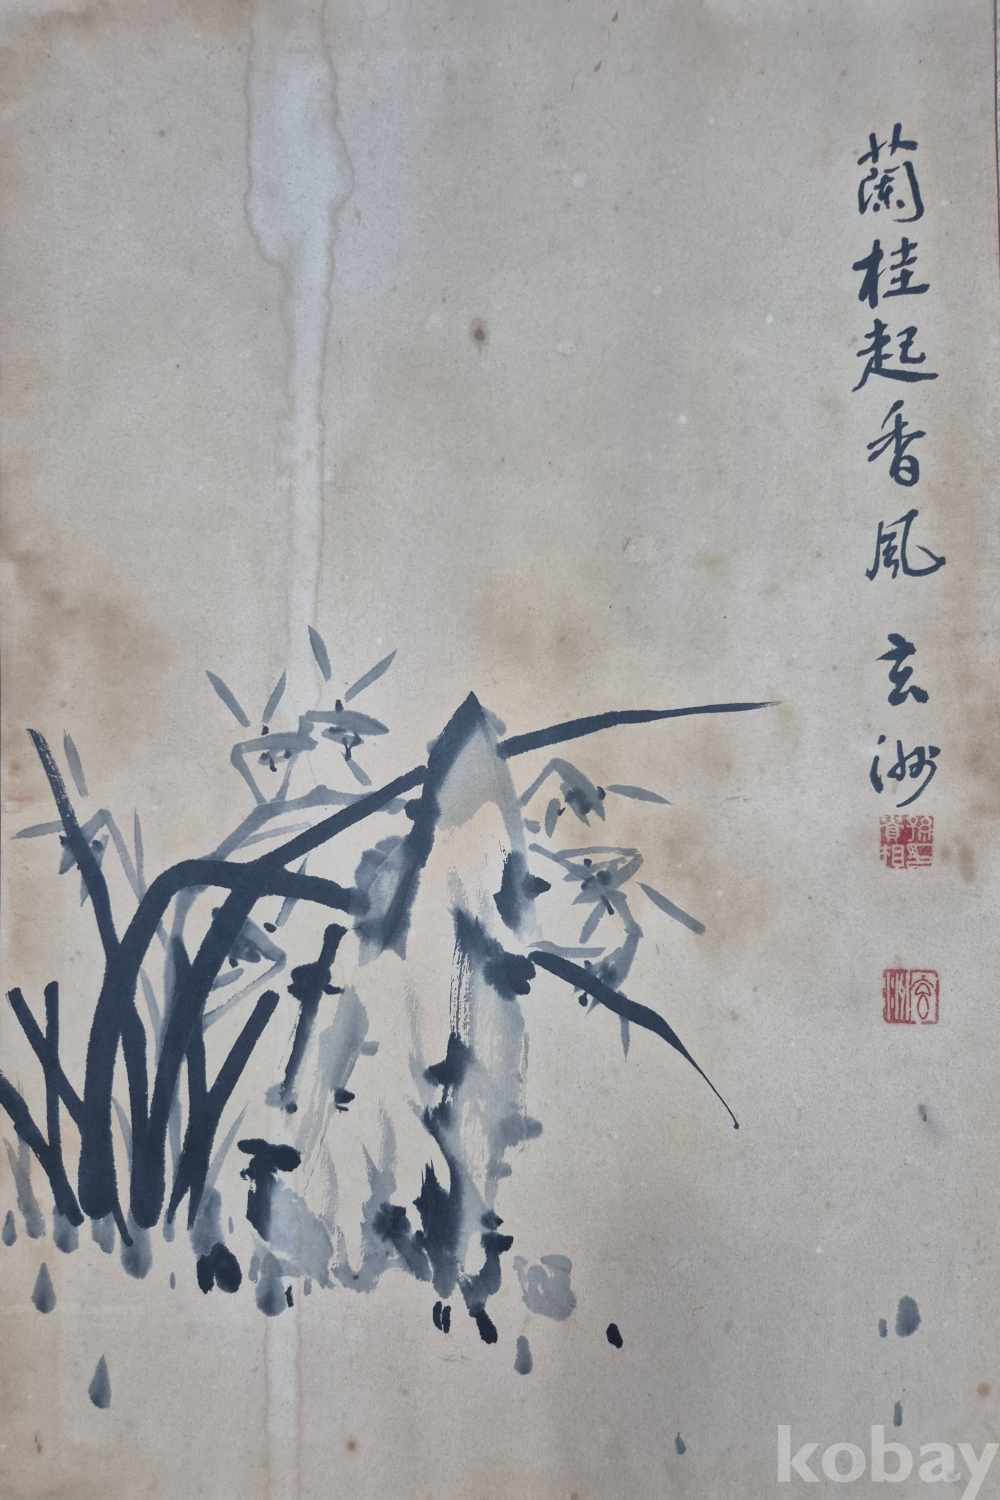 蘭桂起香風 玄洲
玄洲
kobay